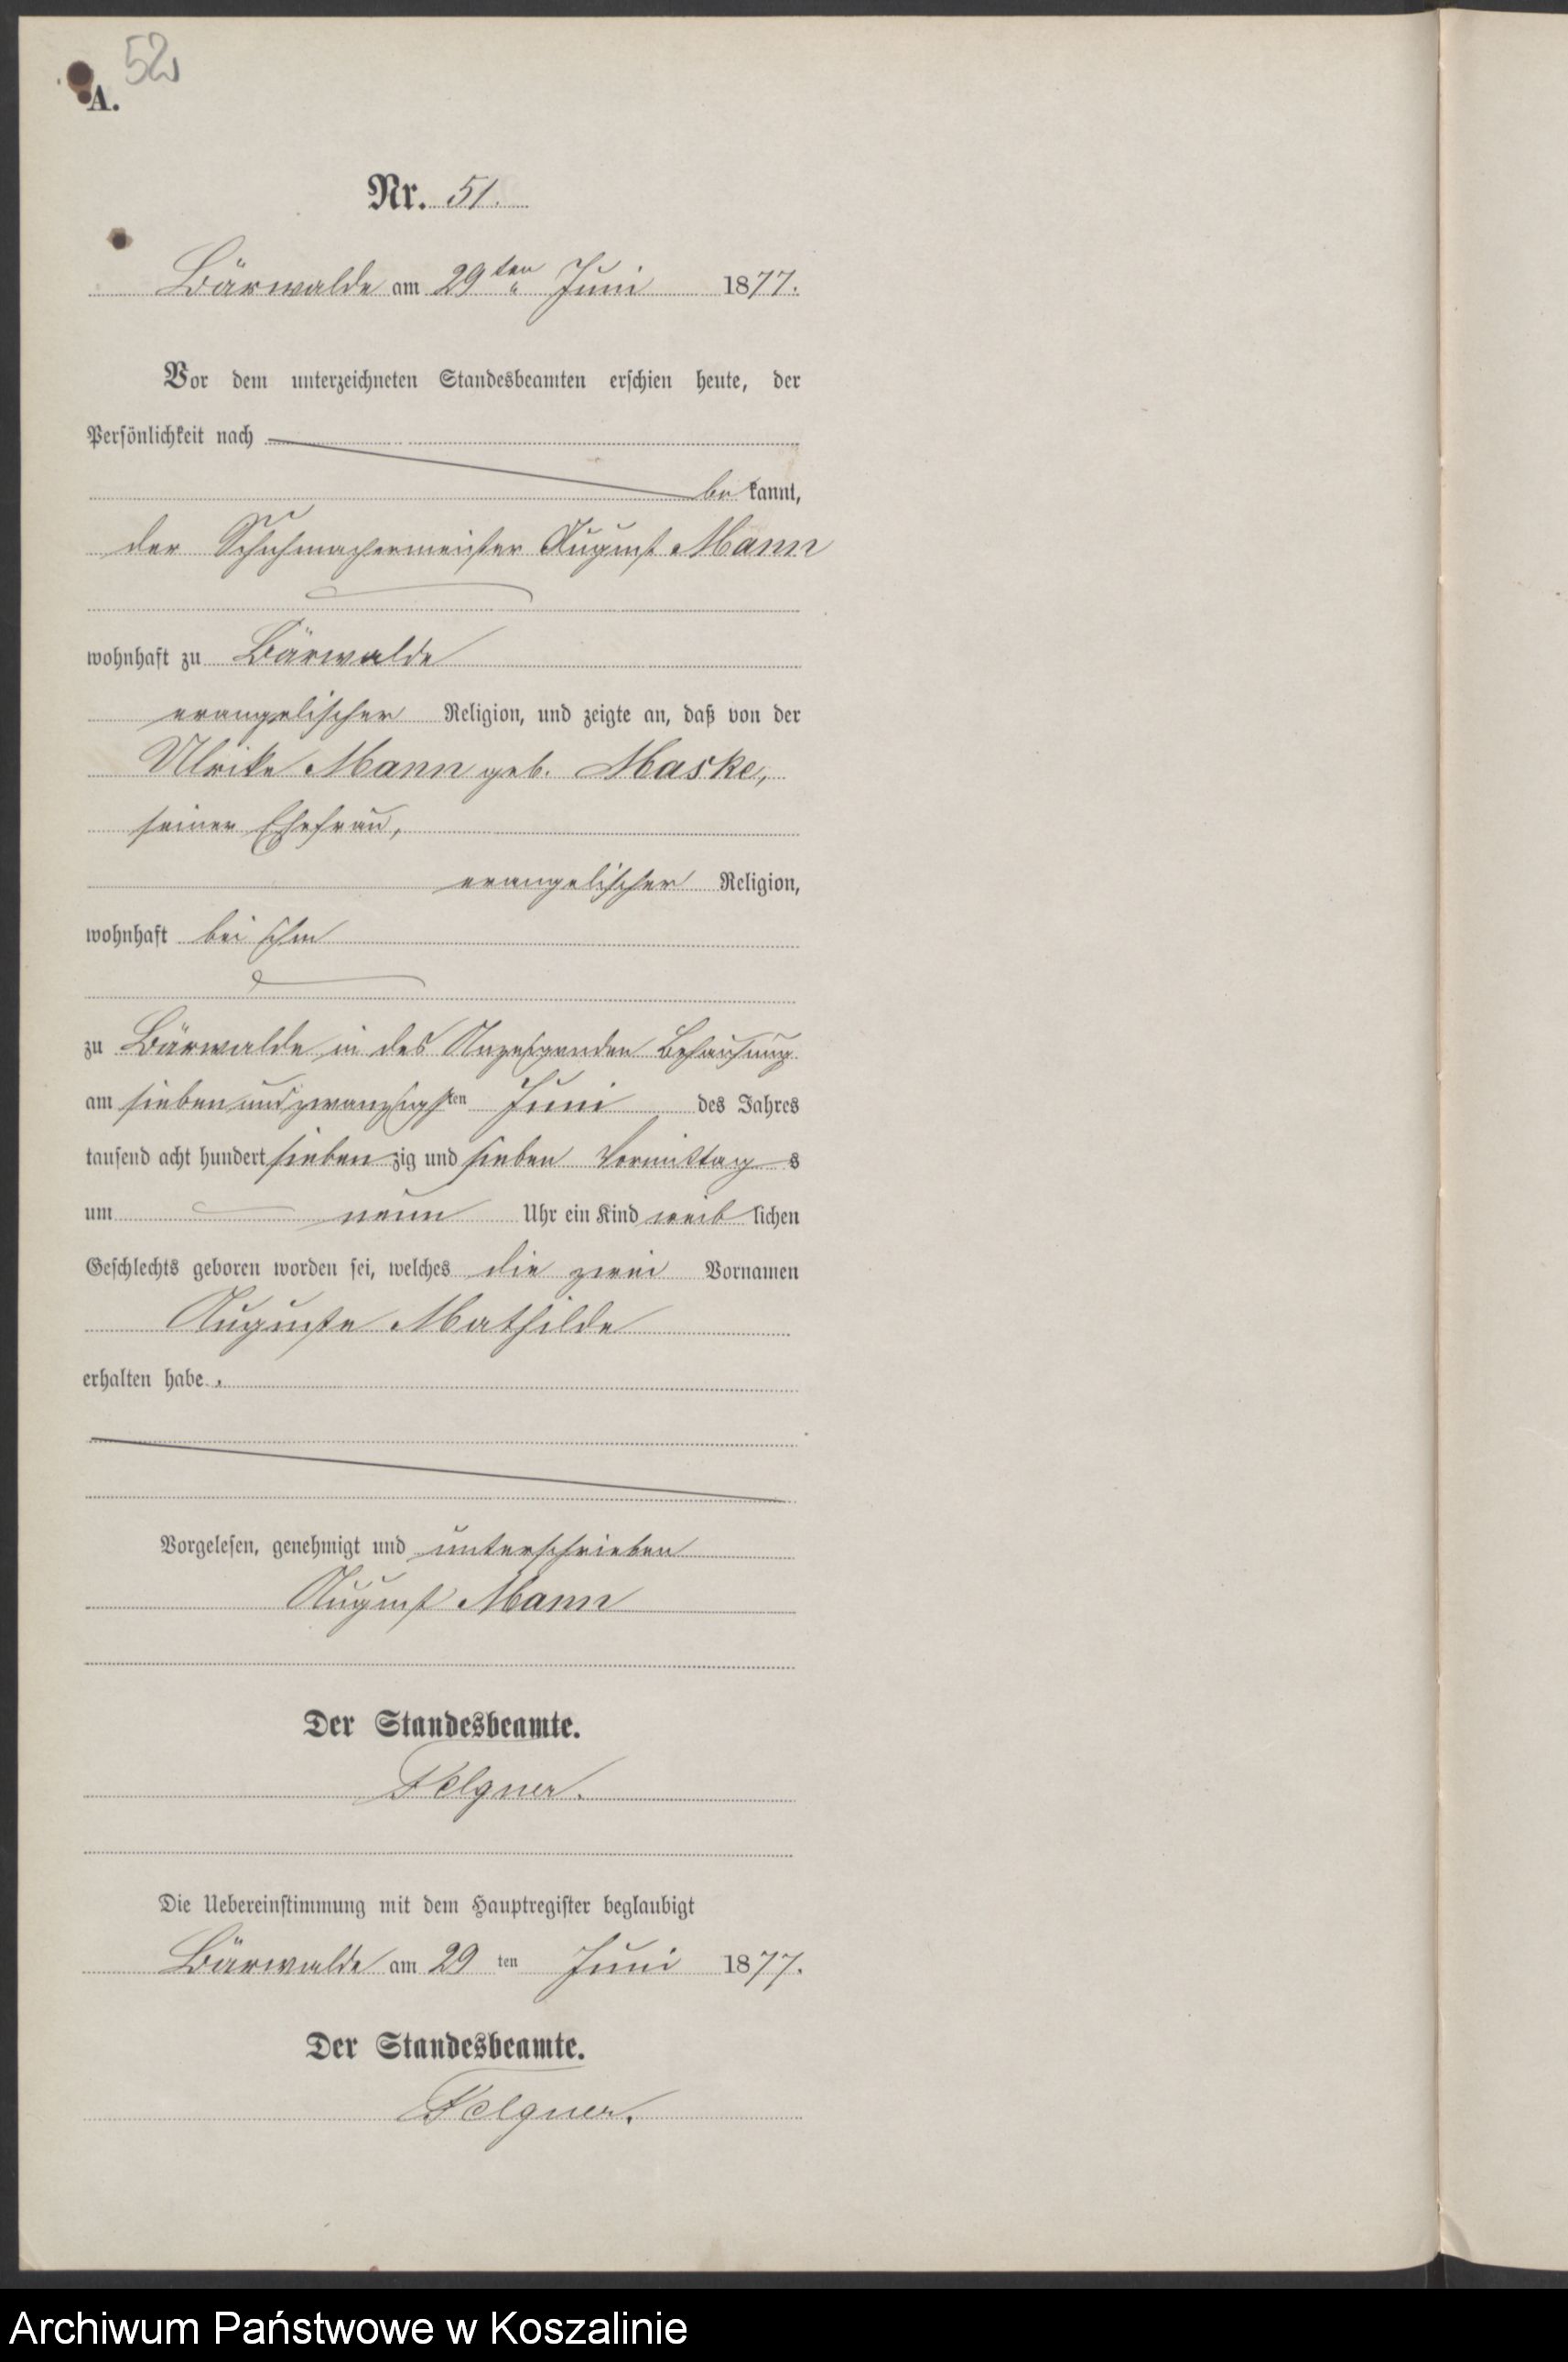 52
A.
Nr. 51.
Bärwalde am 29ten Juni 1877.
Vor dem unterzeichneten Standesbeamten erschien heute, der
Persönlichkeit nach
be kannt,
der Schuhmachermeister August Mann
wohnhaft zu Bärwalde
evangelischer Religion, und zeigte an, daß von der
Ulrike Mann geb. Maske,
seiner Ehefrau,
evangelischer Religion,
wohnhaft bei ihm
zu Bärwalde in des Anzeigenden Behausung
am sieben und zwanzigsten Juni des Jahres
tausend acht hundert sieben zig und sieben Vormittag s
um neun Uhr ein Kind weib lichen
Geschlechts geboren worden sei, welches die zwei Vornamen
Auguste Mathilde
erhalten habe.
Vorgelesen, genehmigt und unterschrieben
August Mann
Der Standesbeamte.
Felgner.
Die Uebereinstimmung mit dem Hauptregister beglaubigt
Bärwalde am 29 ten Juni 1877.
Der Standesbeamte.
Felgner.
Archiwum Państwowe w Koszalinie